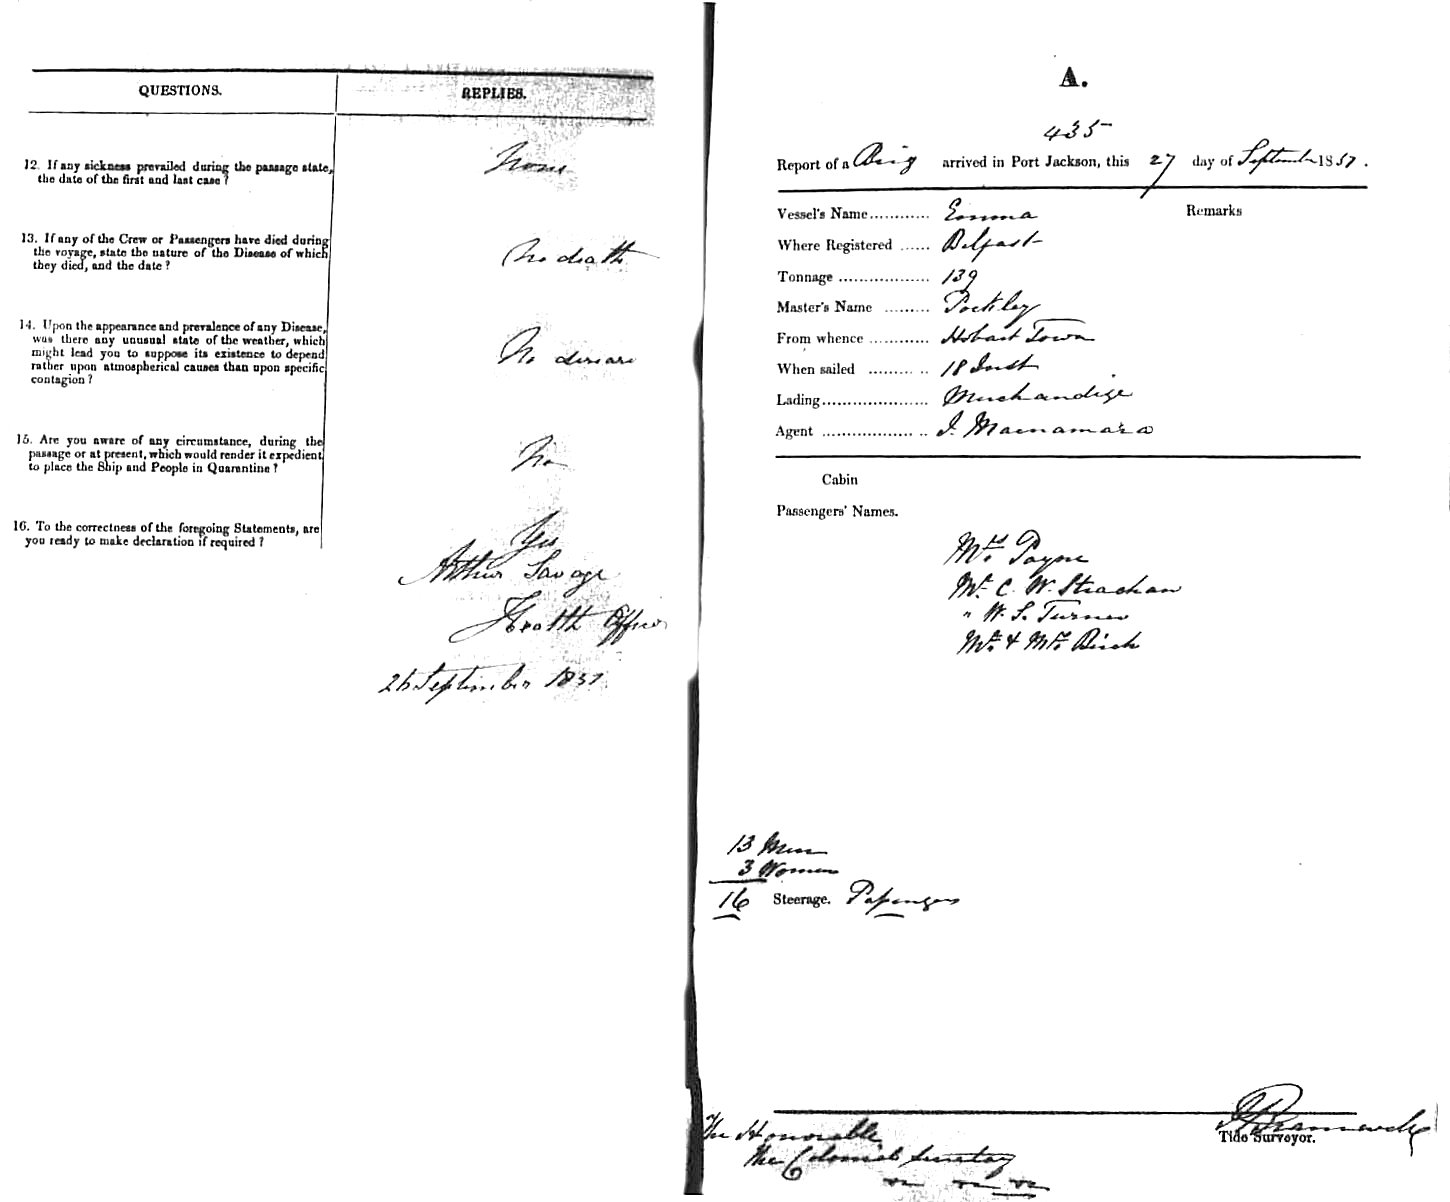 QUESTIONS.
REPLIES.
12. If any sickness prevailed during the passage state,
the date of the first and last case?
None
13. If any of the Crew or Passengers have died during
the voyage, state the nature of the Disease of which
they died, and the date?
No death
14. Upon the appearance and prevalence of any Disease,
was there any unusual state of the weather, which
might lead you to suppose its existence to depend
rather upon atmospherical causes than upon specific
contagion?
No disease
15. Are you aware of any circumstance, during the
passage or at present, which would render it expedient
to place the Ship and People in Quarantine?
No
16. To the correctness of the foregoing Statements, are
you ready to make declaration if required?
Yes
Arthur Savage
Health Officer
26 September 1851
A.
435
Report of a Brig arrived in Port Jackson, this 27 day of September 1851.
Vessel's Name............ Emma
Remarks
Where Registered ...... Belfast
Tonnage .................. 139
Master's Name ......... Pockley
From whence ............ Hobart Town
When sailed ......... .. 18 Inst
Lading..................... Merchandize
Agent .................. .. J. Macnamara
Cabin
Passengers' Names.
Mrs. Payne
Mr. C. W. Strachan
" W. S. Turner
Mr. & Mrs. Birch
13 Men
3 Women
16 Steerage. Passengers
Tide Surveyor.
The Honorable
The Colonial Secretary